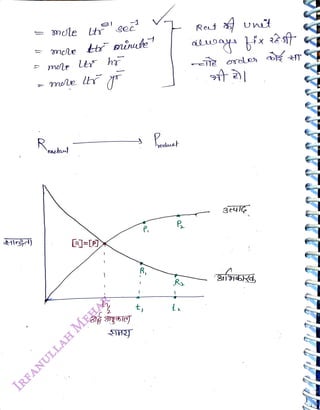 = mole ltr⁻¹ sec⁻¹
= mole ltr⁻¹ minute⁻¹
= mole ltr⁻ hr⁻
= mole ltr⁻ yr⁻
Rat की unit
always fix रहेगी
चाहे order कोई सा
भी हो।
Reactant → Product
उत्पाद
P₁ P₂
सान्द्रता
[R]=[P]
R₁
R₂
अभिकारक
t₁ t₂
समय
IRFANULLAH MEHAR